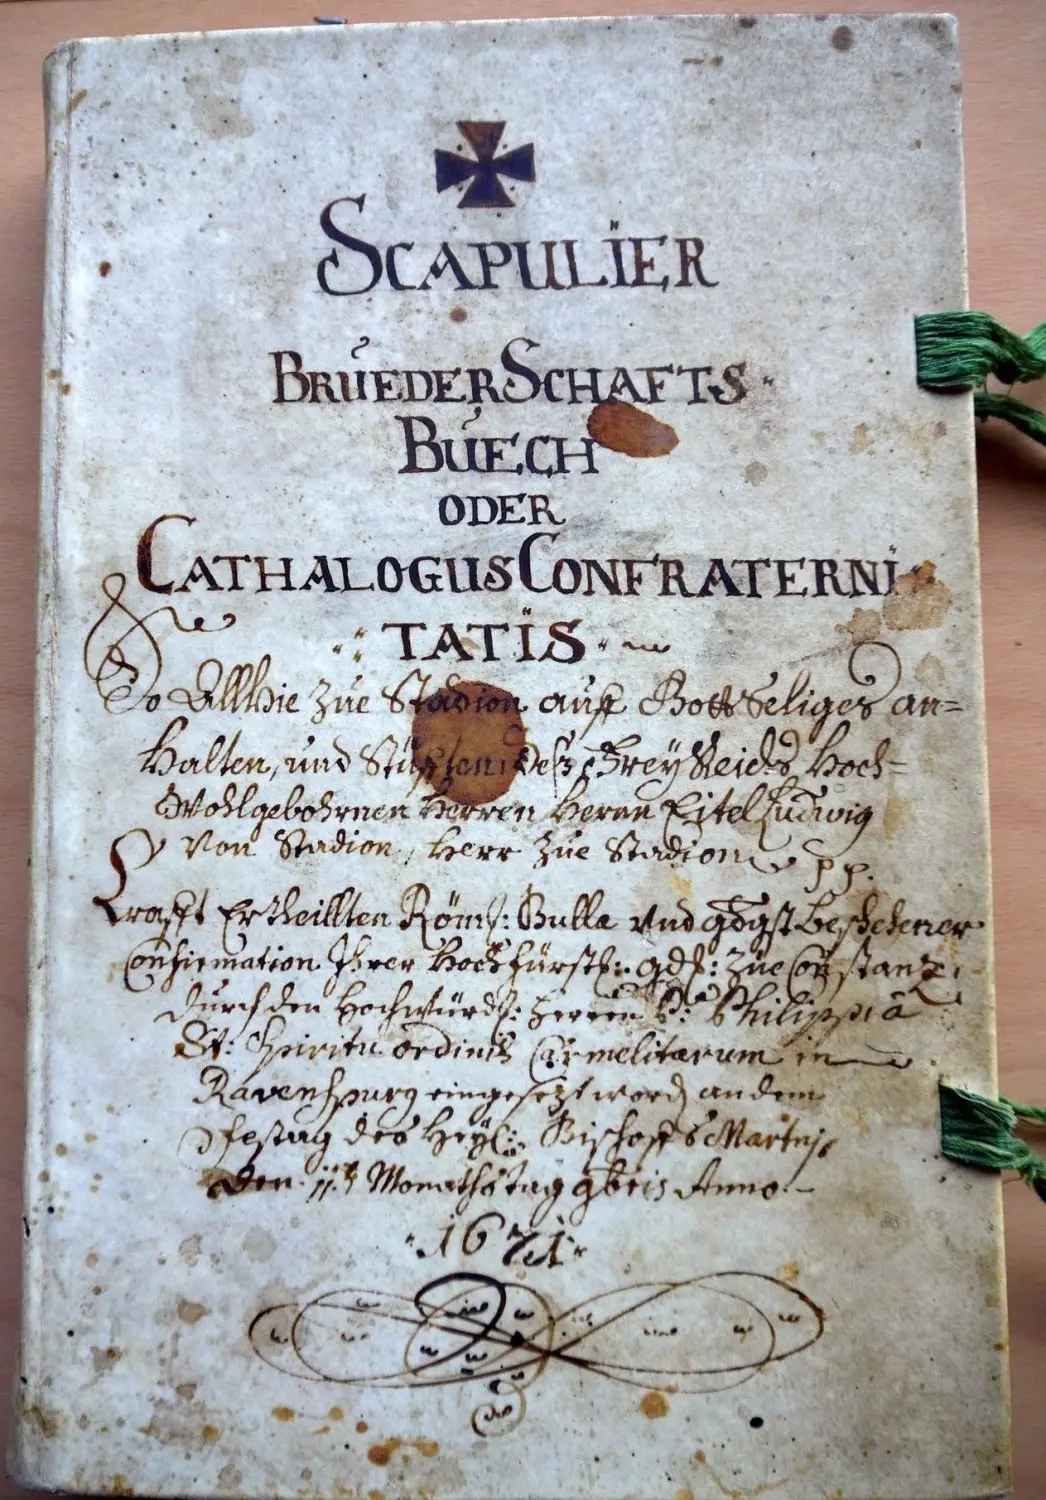 SCAPULIER
BRUEDERSCHAFTS
BUECH
ODER
CATHALOGUS CONFRATERNI
TATIS
So Allhie zue Stadion auff Gottseliges an=
halten, und Stüfften deß Frey Reichs Hoch=
Wohlgebohrnen Herren Herrn Eitel Ludwig
Von Stadion, Herr zue Stadion pp.
Krafft Ertheillten Röms: Bulla vnd gdgst beschehener
Confirmation Ihrer Hochfürstl: gdl: zue Constanz,
durch den Hochwürdl: Herren P: Philipp à
St: Spiritu ordinis Carmelitarum in
Ravenspurg eingesezt word) an dem
festag des Heyl: Bischoffs Martini
den 11.t Monathstag 9bris Anno
1671